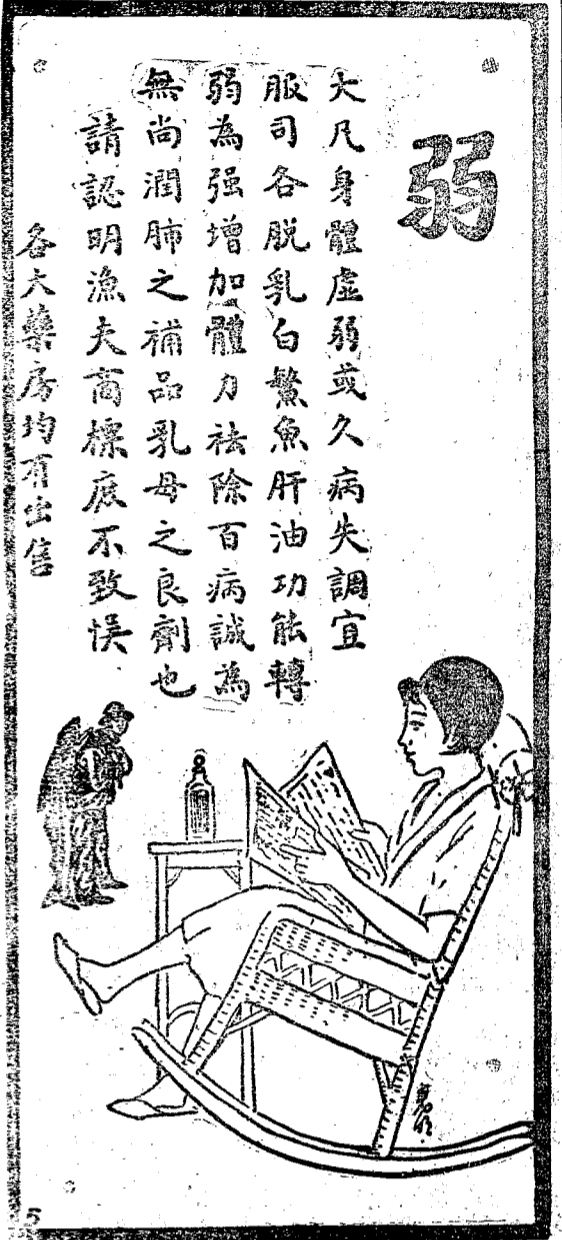 弱
大凡身體虛弱或久病失調宜
服司各脱乳白鰵魚肝油功能轉
弱為强增加體力祛除百病誠為
無尚潤肺之補品乳母之良劑也
請認明漁夫商標庶不致悮
各大藥房均有出售
5